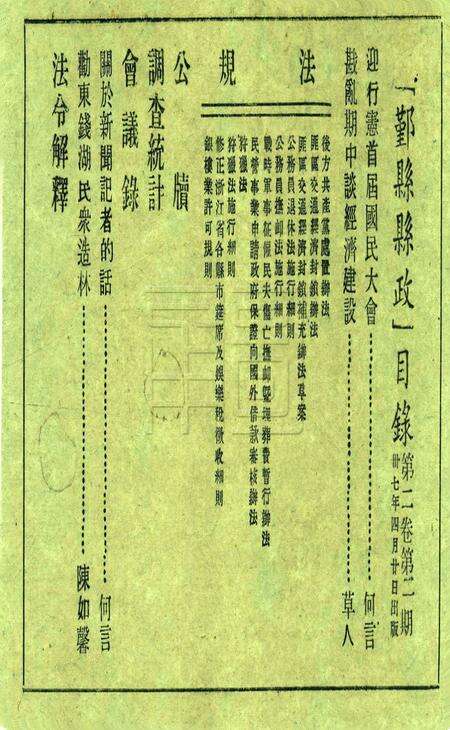 「鄞縣縣政」目錄
第二卷第二期
卅七年四月廿日出版
迎行憲首屆國民大會……何言
戡亂期中談經濟建設……草人
法規
後方共產黨處置辦法
匪區交通經濟封鎖辦法
匪區交通經濟封鎖補充辦法草案
公務員退休法施行細則
公務員撫卹法施行細則
戰時軍事征僱民夫傷亡撫卹暨埋葬費暫行辦法
民營事業申請政府保證向國外借款審核辦法
狩獵法
狩獵法施行細則
修正浙江省各縣市筵席及娛樂稅徵收細則
銀樓業許可規則
公牘
調查統計
會議錄
關於新聞記者的話……何言
勸東錢湖民衆造林……陳如馨
法令解釋